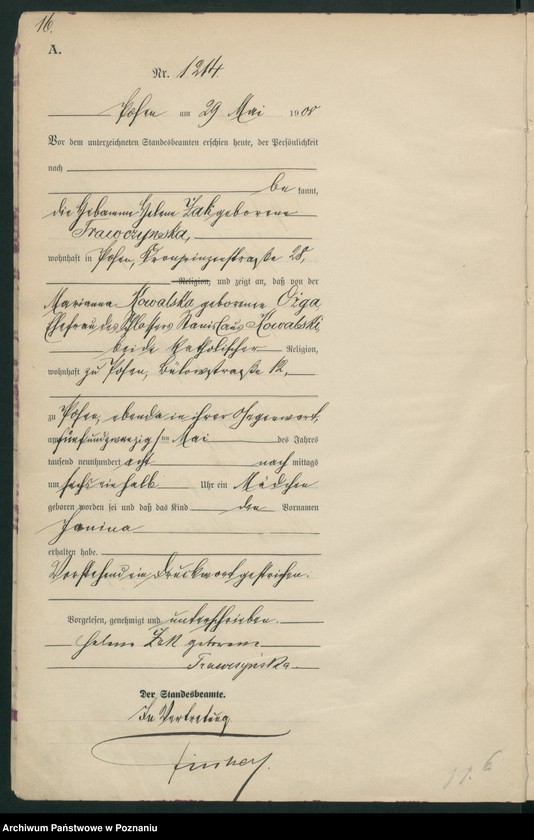 16.
A.
Nr. 1214.
Posen am 29 Mai 1908
Vor dem unterzeichneten Standesbeamten erschien heute, der Persönlichkeit
nach
be kannt,
die Hebamme Helene Zak geborene
Trawczynska,
wohnhaft in Posen, Kronprinzenstraße 28,
Religion, und zeigt an, daß von der
Marianna Kowalska geborenen Ożga
Ehefrau des Schlossers Stanislaus Kowalski
beide katholischer Religion,
wohnhaft zu Posen, Bülowstraße 12,
zu Posen, ebenda in ihrer Gegenwart,
am fünfundzwanzigsten Mai des Jahres
tausend neunhundert acht nach mittags
um sechs ein halb Uhr ein Mädchen
geboren worden sei und daß das Kind den Vornamen
Janina
erhalten habe.
Vorstehend ein Druckwort gestrichen.
Vorgelesen, genehmigt und unterschrieben.
Helene Zak geborene
Trawczyńska
Der Standesbeamte.
In Vertretung
Archiwum Państwowe w Poznaniu